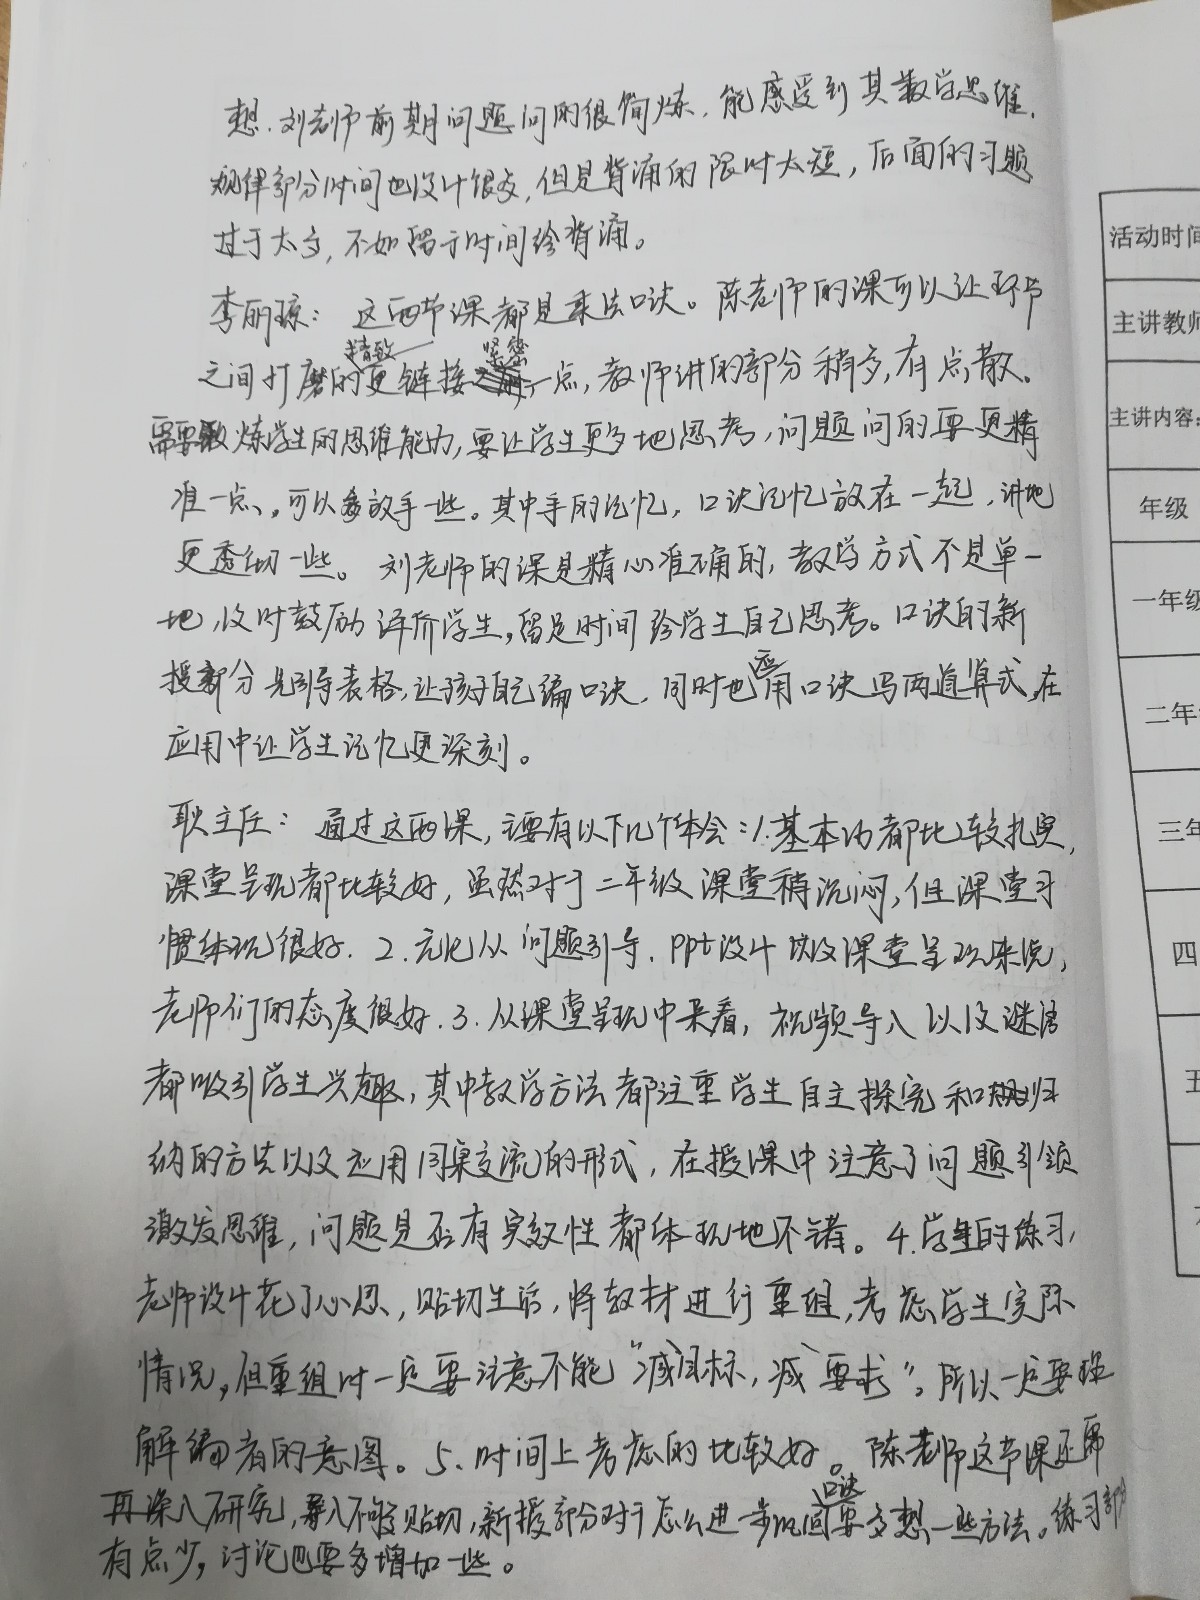 想.刘老师前期问题问的很简炼,能感受到其数学思维.
规律部分时间也设计很多,但是背诵的限时太短,后面的习题
过于太多,不如留于时间给背诵。
李丽琼：这两节课都是乘法口诀。陈老师的课可以让环节
精致 紧密
之间打磨的更链接一点,教师讲的部分稍多,有点散。
需要锻炼学生的思维能力,要让学生更多地思考,问题问的要更精
准一点、可以多放手一些。其中手的记忆,口诀记忆放在一起,讲地
更透彻一些。刘老师的课是精心准确的,教学方式不是单一
地,及时鼓励评价学生,留足时间给学生自己思考。口诀的新
授部分先引导表格,让孩子自己编口诀.同时也应用口诀写两道算式,在
应用中让学生记忆更深刻。
耿主任：通过这两课,主要有以下几个体会：1.基本功都比较扎实,
课堂呈现都比较好,虽然对于二年级课堂稍沉闷,但课堂习
惯体现很好.2.无论从问题引导.ppt设计以及课堂呈现来说,
老师们的态度很好.3.从课堂呈现中来看,视频导入以及谜语
都吸引学生兴趣,其中教学方法都注重学生自主探究和归
纳的方法以及应用同桌交流的形式,在授课中注意了问题引领
激发思维,问题是否有实效性都体现地不错。4.学生的练习,
老师设计花了心思,贴切生活,将教材进行重组,考虑学生实际
情况,但重组时一定要注意不能“减目标,减要求”。所以一定要理
解编者的意图。5.时间上考虑的比较好。陈老师这节课还需
再深入研究,导入不够贴切,新授部分对于怎么进一步巩固口诀要多想一些方法。练习部分
有点少,讨论也要多增加一些。
活动时间
主讲教师
主讲内容：
年级
一年级
二年
三年
四
五